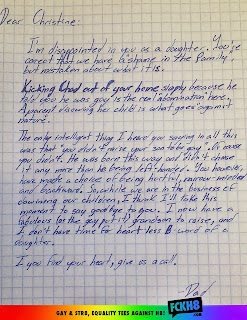 Dear Christine:
I'm disappointed in you as a daughter. You're
correct that we have a "shame in the family",
but mistaken about what it is.
Kicking Chad out of your home simply because he
told you he was gay is the real "abomination" here.
A parent disowning her child is what goes "against
nature".
The only intelligent thing I heard you saying in all this
was that "you didn't raise your son to be gay". Of course
you didn't. He was born this way and didn't choose
it any more than he being left-handed. You however,
have made a choice of being hurtful, narrow-minded
and backward. So, while we are in the business of
disowning our children, I think I'll take this
moment to say goodbye to you. I now have a
fabulous (as the gay put it) grandson to raise, and
I don't have time for heart-less B-word of a
daughter.
If you find your heart, give us a call.
- Dad
GAY & STR8, EQUALITY TEES AGAINST H8!
FCKH8
.COM